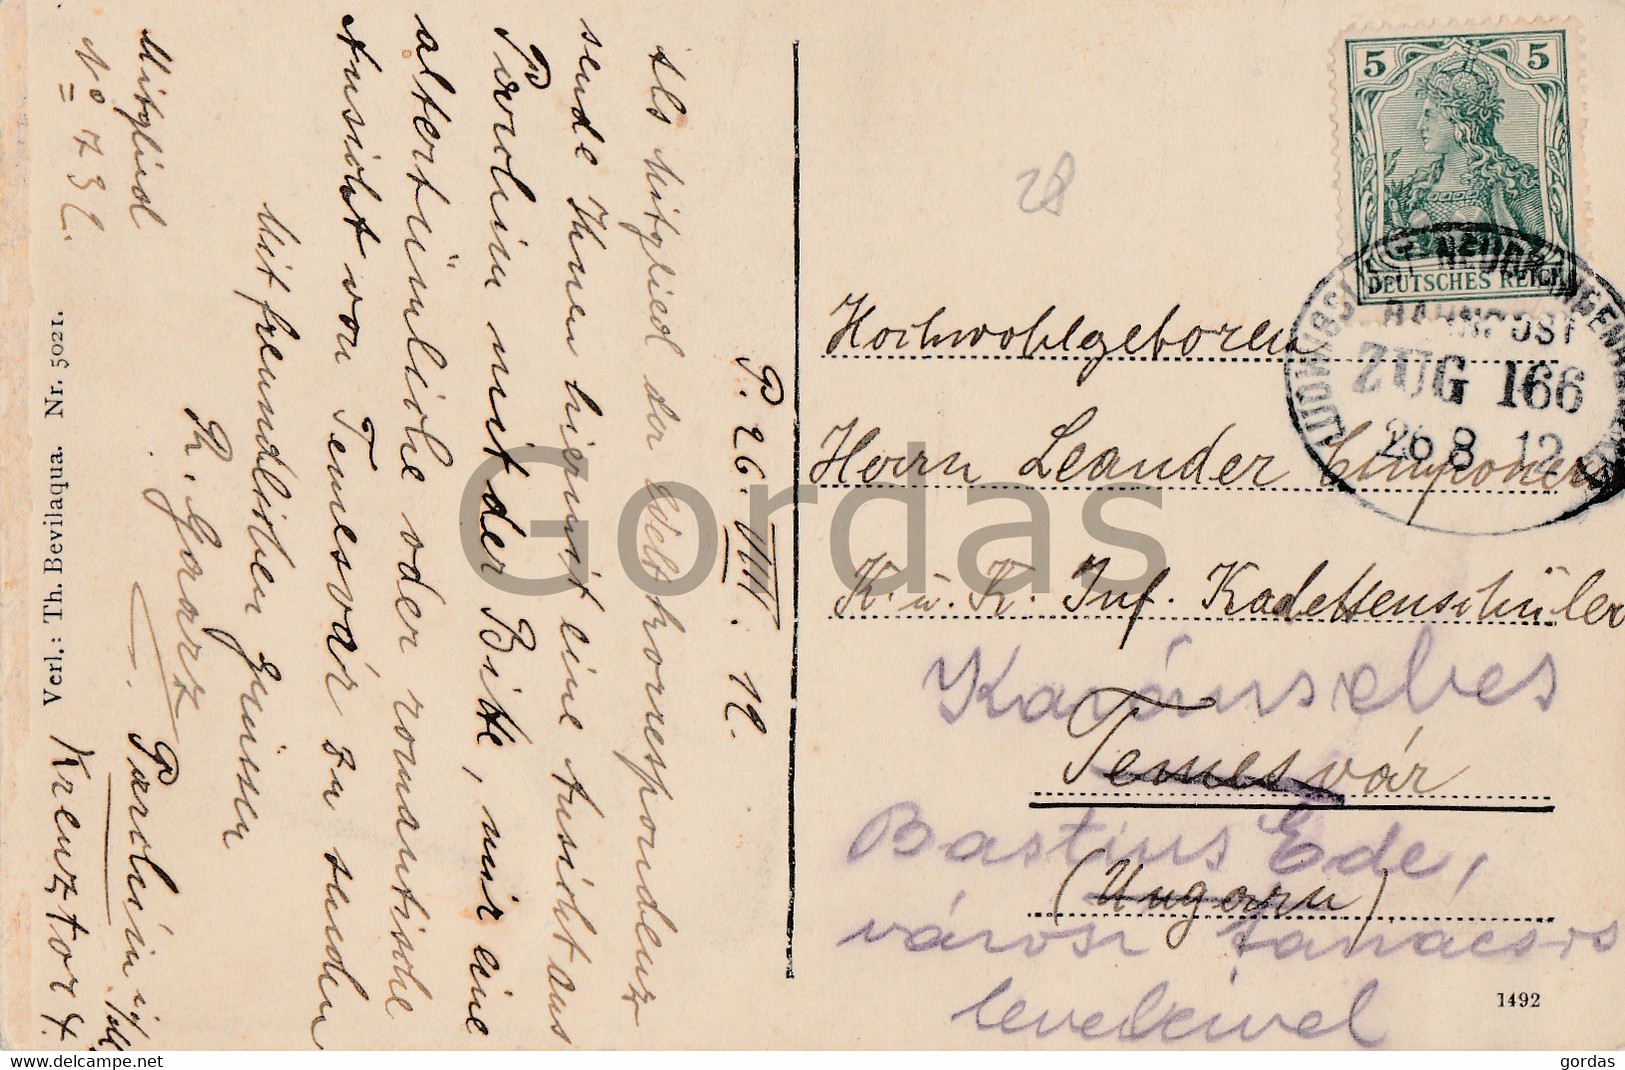 P. 26. VIII. 12.
Als Mitglied der Weltkorrespondenz
sende Ihnen hiermit eine Ansicht aus
Parchim mit der Bitte, mir eine
altertümliche oder romantische
Ansicht von Temesvár zu senden
Mit freundlichen Grüssen
R. Gararz
Mitglied
No 732.
Parchim i/Mkl.
Kreuztor 4.
Verl.: Th. Bevilaqua. Nr. 5021.
5 5
DEUTSCHES REICH
BAHNPOST
ZUG 166
26 8 12
28
Hochwohlgeboren
Herrn Leander
K. u. K. Inf. Kadettenschüler
Karánsebes
Temesvár
Bastius Ede,
(Ungarn)
városi tanácsos
leveleivel
1492
Gordas
gordas